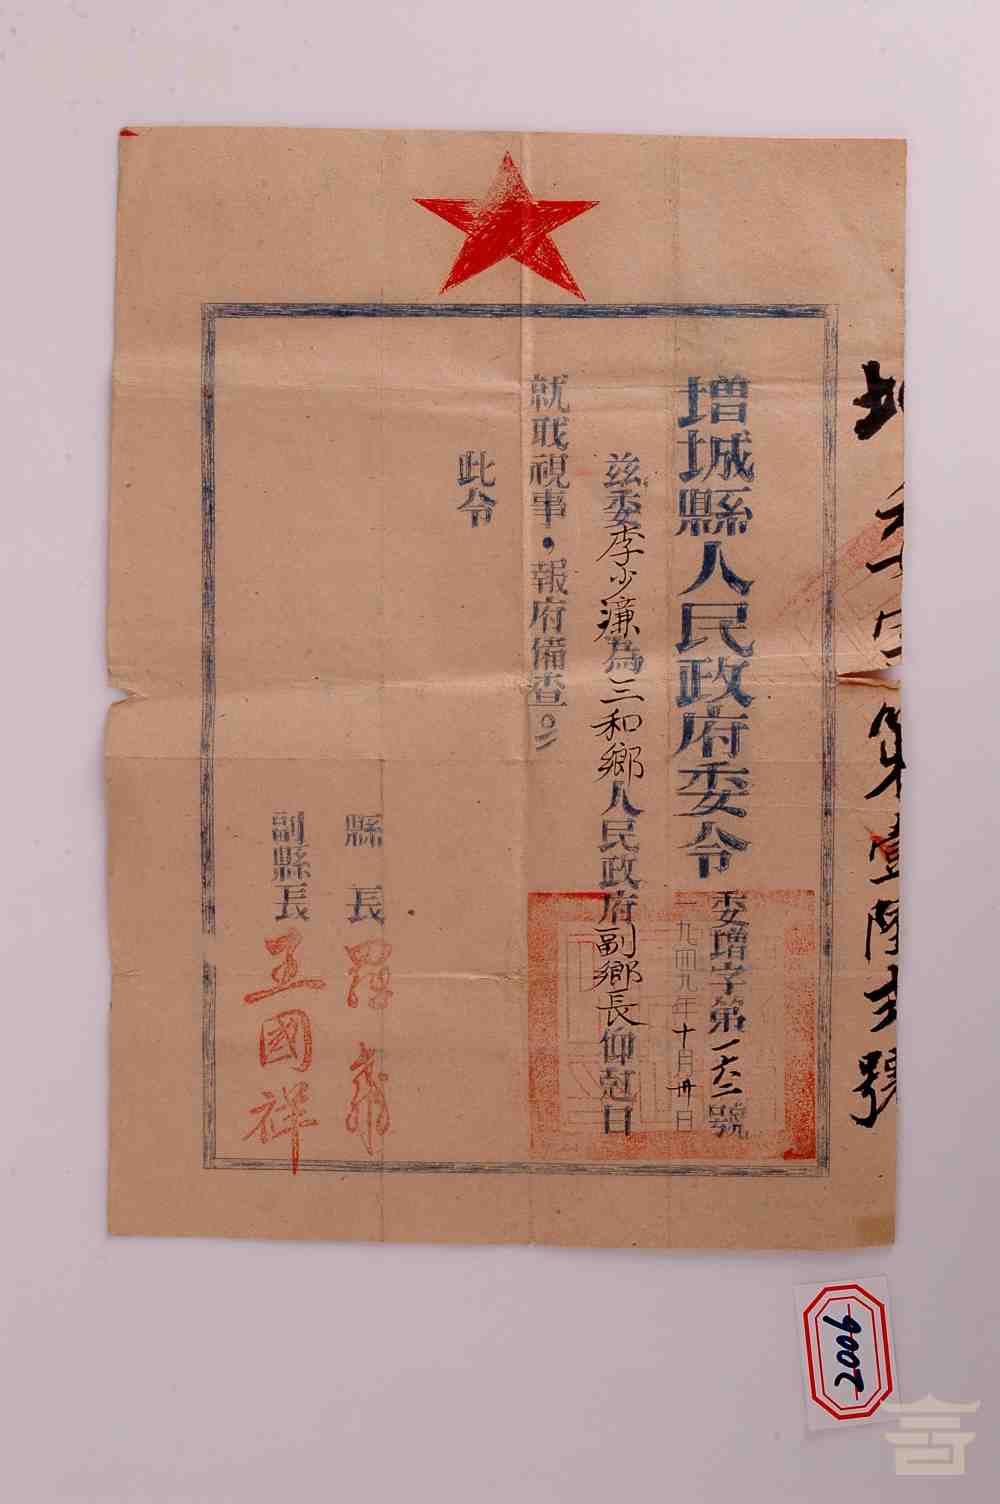 增委字第壹陸貳號
增城縣人民政府委令
委增字第一六二號
一九四九年十月卅日
茲委李少濂為三和鄉人民政府副鄉長仰尅日
就职視事，報府備查。
此令
縣長
副縣長王國祥
9002